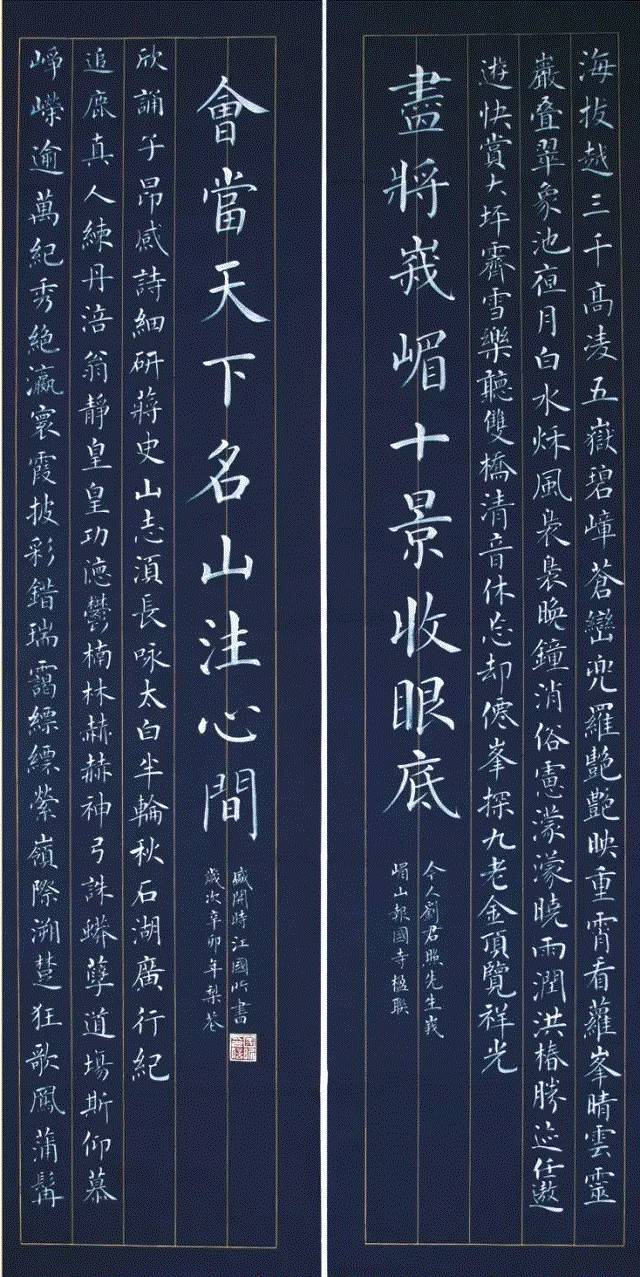 海拔越三千高凌五嶽碧嶂蒼巒兜羅艷艷映重霄看蘿峯晴雲靈
巖叠翠象池夜月白水秌風裊裊晚鐘消俗慮濛濛曉雨潤洪椿勝迹任遨
遊快賞大坪霽雪樂聽雙橋清音休忘却僊峯探九老金頂覽祥光
盡將峩嵋十景收眼底
今人劉君照先生峩
嵋山報國寺楹联
崢嶸逾萬紀秀絶瀛寰霞披彩錯瑞靄縹縹縈嶺際溯楚狂歌鳳蒲髯
追鹿真人練丹涪翁靜皇皇功德鬱楠林赫赫神弓誅蟒孽道場斯仰慕
欣誦子昂感詩細研蔣史山志湏長咏太白半輪秋石湖廣行紀
會當天下名山注心間
歲次辛卯年梨花
盛開時江國書